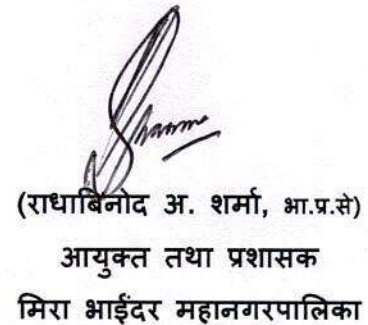 Sharma
(राधाबिनोद अ. शर्मा, भा.प्र.से)
आयुक्त तथा प्रशासक
मिरा भाईंदर महानगरपालिका